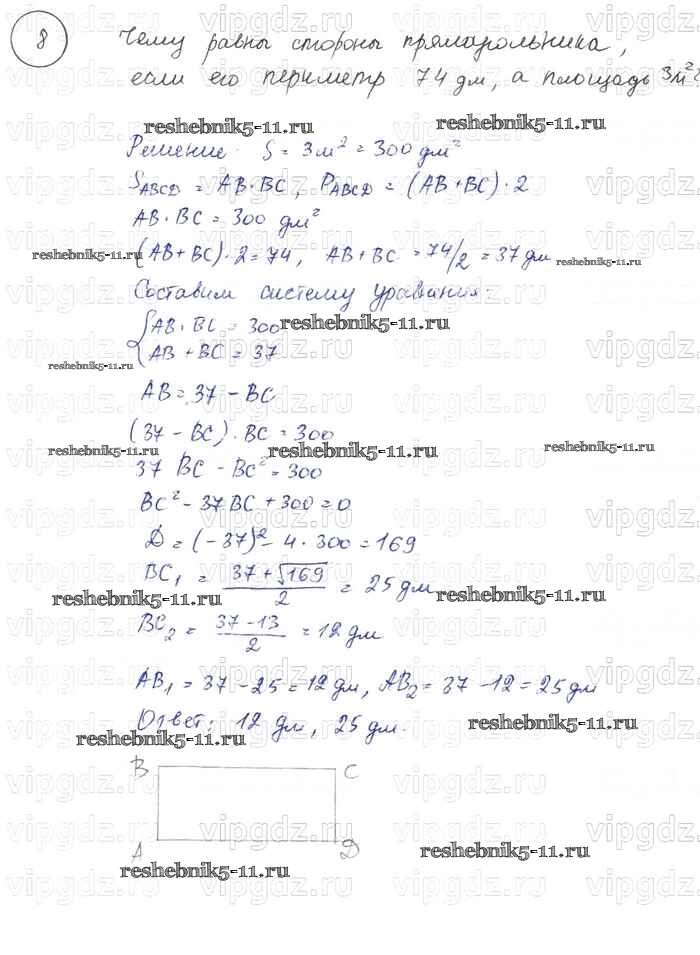 8
Чему равны стороны прямоугольника,
если его периметр 74 дм, а площадь 3 м²?
reshebnik5-11.ru
reshebnik5-11.ru
Решение. S = 3м² = 300 дм²
S_ABCD = AB · BC, P_ABCD = (AB + BC) · 2
AB · BC = 300 дм²
reshebnik5-11.ru
(AB + BC) · 2 = 74, AB + BC = 74/2 = 37 дм
reshebnik5-11.ru
Составим систему уравнения.
{ AB · BC = 300
reshebnik5-11.ru
AB + BC = 37
reshebnik5-11.ru
AB = 37 − BC
(37 − BC) · BC = 300
reshebnik5-11.ru
reshebnik5-11.ru
reshebnik5-11.ru
37 BC − BC² = 300
BC² − 37BC + 300 = 0
D = (−37)² − 4 · 300 = 169
BC₁ = (37 + √169)/2 = 25 дм
reshebnik5-11.ru
reshebnik5-11.ru
BC₂ = (37 − 13)/2 = 12 дм
AB₁ = 37 − 25 = 12 дм, AB₂ = 37 − 12 = 25 дм
Ответ: 12 дм, 25 дм.
reshebnik5-11.ru
reshebnik5-11.ru
B C
A D
reshebnik5-11.ru
reshebnik5-11.ru
vipgdz.ru